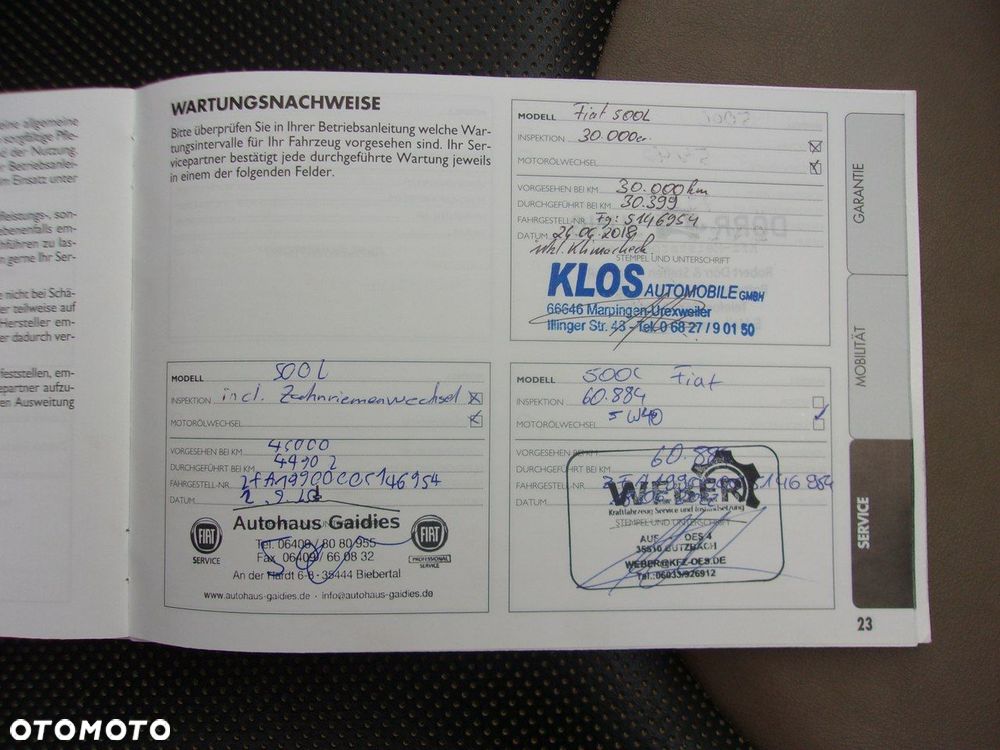 eine allgemeine
sorgfältige Pfle-
d der Nutzung,
r Betriebsanlei-
m Einsatz unter
fleistungs-, son-
ebenenfalls em-
hführen zu las-
n gerne Ihr Ser-
e nicht bei Schä-
er teilweise auf
Hersteller em-
er dadurch ver-
feststellen, em-
epartner aufzu-
en Ausweitung
WARTUNGSNACHWEISE
Bitte überprüfen Sie in Ihrer Betriebsanleitung welche War-
tungsintervalle für Ihr Fahrzeug vorgesehen sind. Ihr Ser-
vicepartner bestätigt jede durchgeführte Wartung jeweils
in einem der folgenden Felder.
MODELL Fiat 500L
INSPEKTION 30.000er
MOTORÖLWECHSEL
VORGESEHEN BEI KM 30.000km
DURCHGEFÜHRT BEI KM 30.399
FAHRGESTELL-NR. Fg: 5146954
DATUM 26.06.2018
inkl. Klimacheck
STEMPEL UND UNTERSCHRIFT
KLOS AUTOMOBILE GMBH
66646 Marpingen-Urexweiler
Illinger Str. 43 - Tel. 0 68 27 / 9 01 50
MODELL 500L
INSPEKTION incl. Zahnriemenwechsel
MOTORÖLWECHSEL
VORGESEHEN BEI KM 45000
DURCHGEFÜHRT BEI KM 44902
FAHRGESTELL-NR.
DATUM
Autohaus Gaidies
Tel. 06409 / 80 80 955
Fax 06409 / 66 08 32
An der Hardt 6-8 · 35444 Biebertal
www.autohaus-gaidies.de · info@autohaus-gaidies.de
FIAT
SERVICE
FIAT
PROFESSIONAL
SERVICE
MODELL 500L Fiat
INSPEKTION 60.884
MOTORÖLWECHSEL 5W40
VORGESEHEN BEI KM
DURCHGEFÜHRT BEI KM 60.884
FAHRGESTELL-NR.
DATUM
WEBER
Kraftfahrzeug Service und Instandsetzung
STEMPEL UND UNTERSCHRIFT
OES 4
35510 BUTZBACH
WEBER@KFZ-OES.DE
Tel.:06033/926912
GARANTIE
MOBILITÄT
SERVICE
23
OTOMOTO